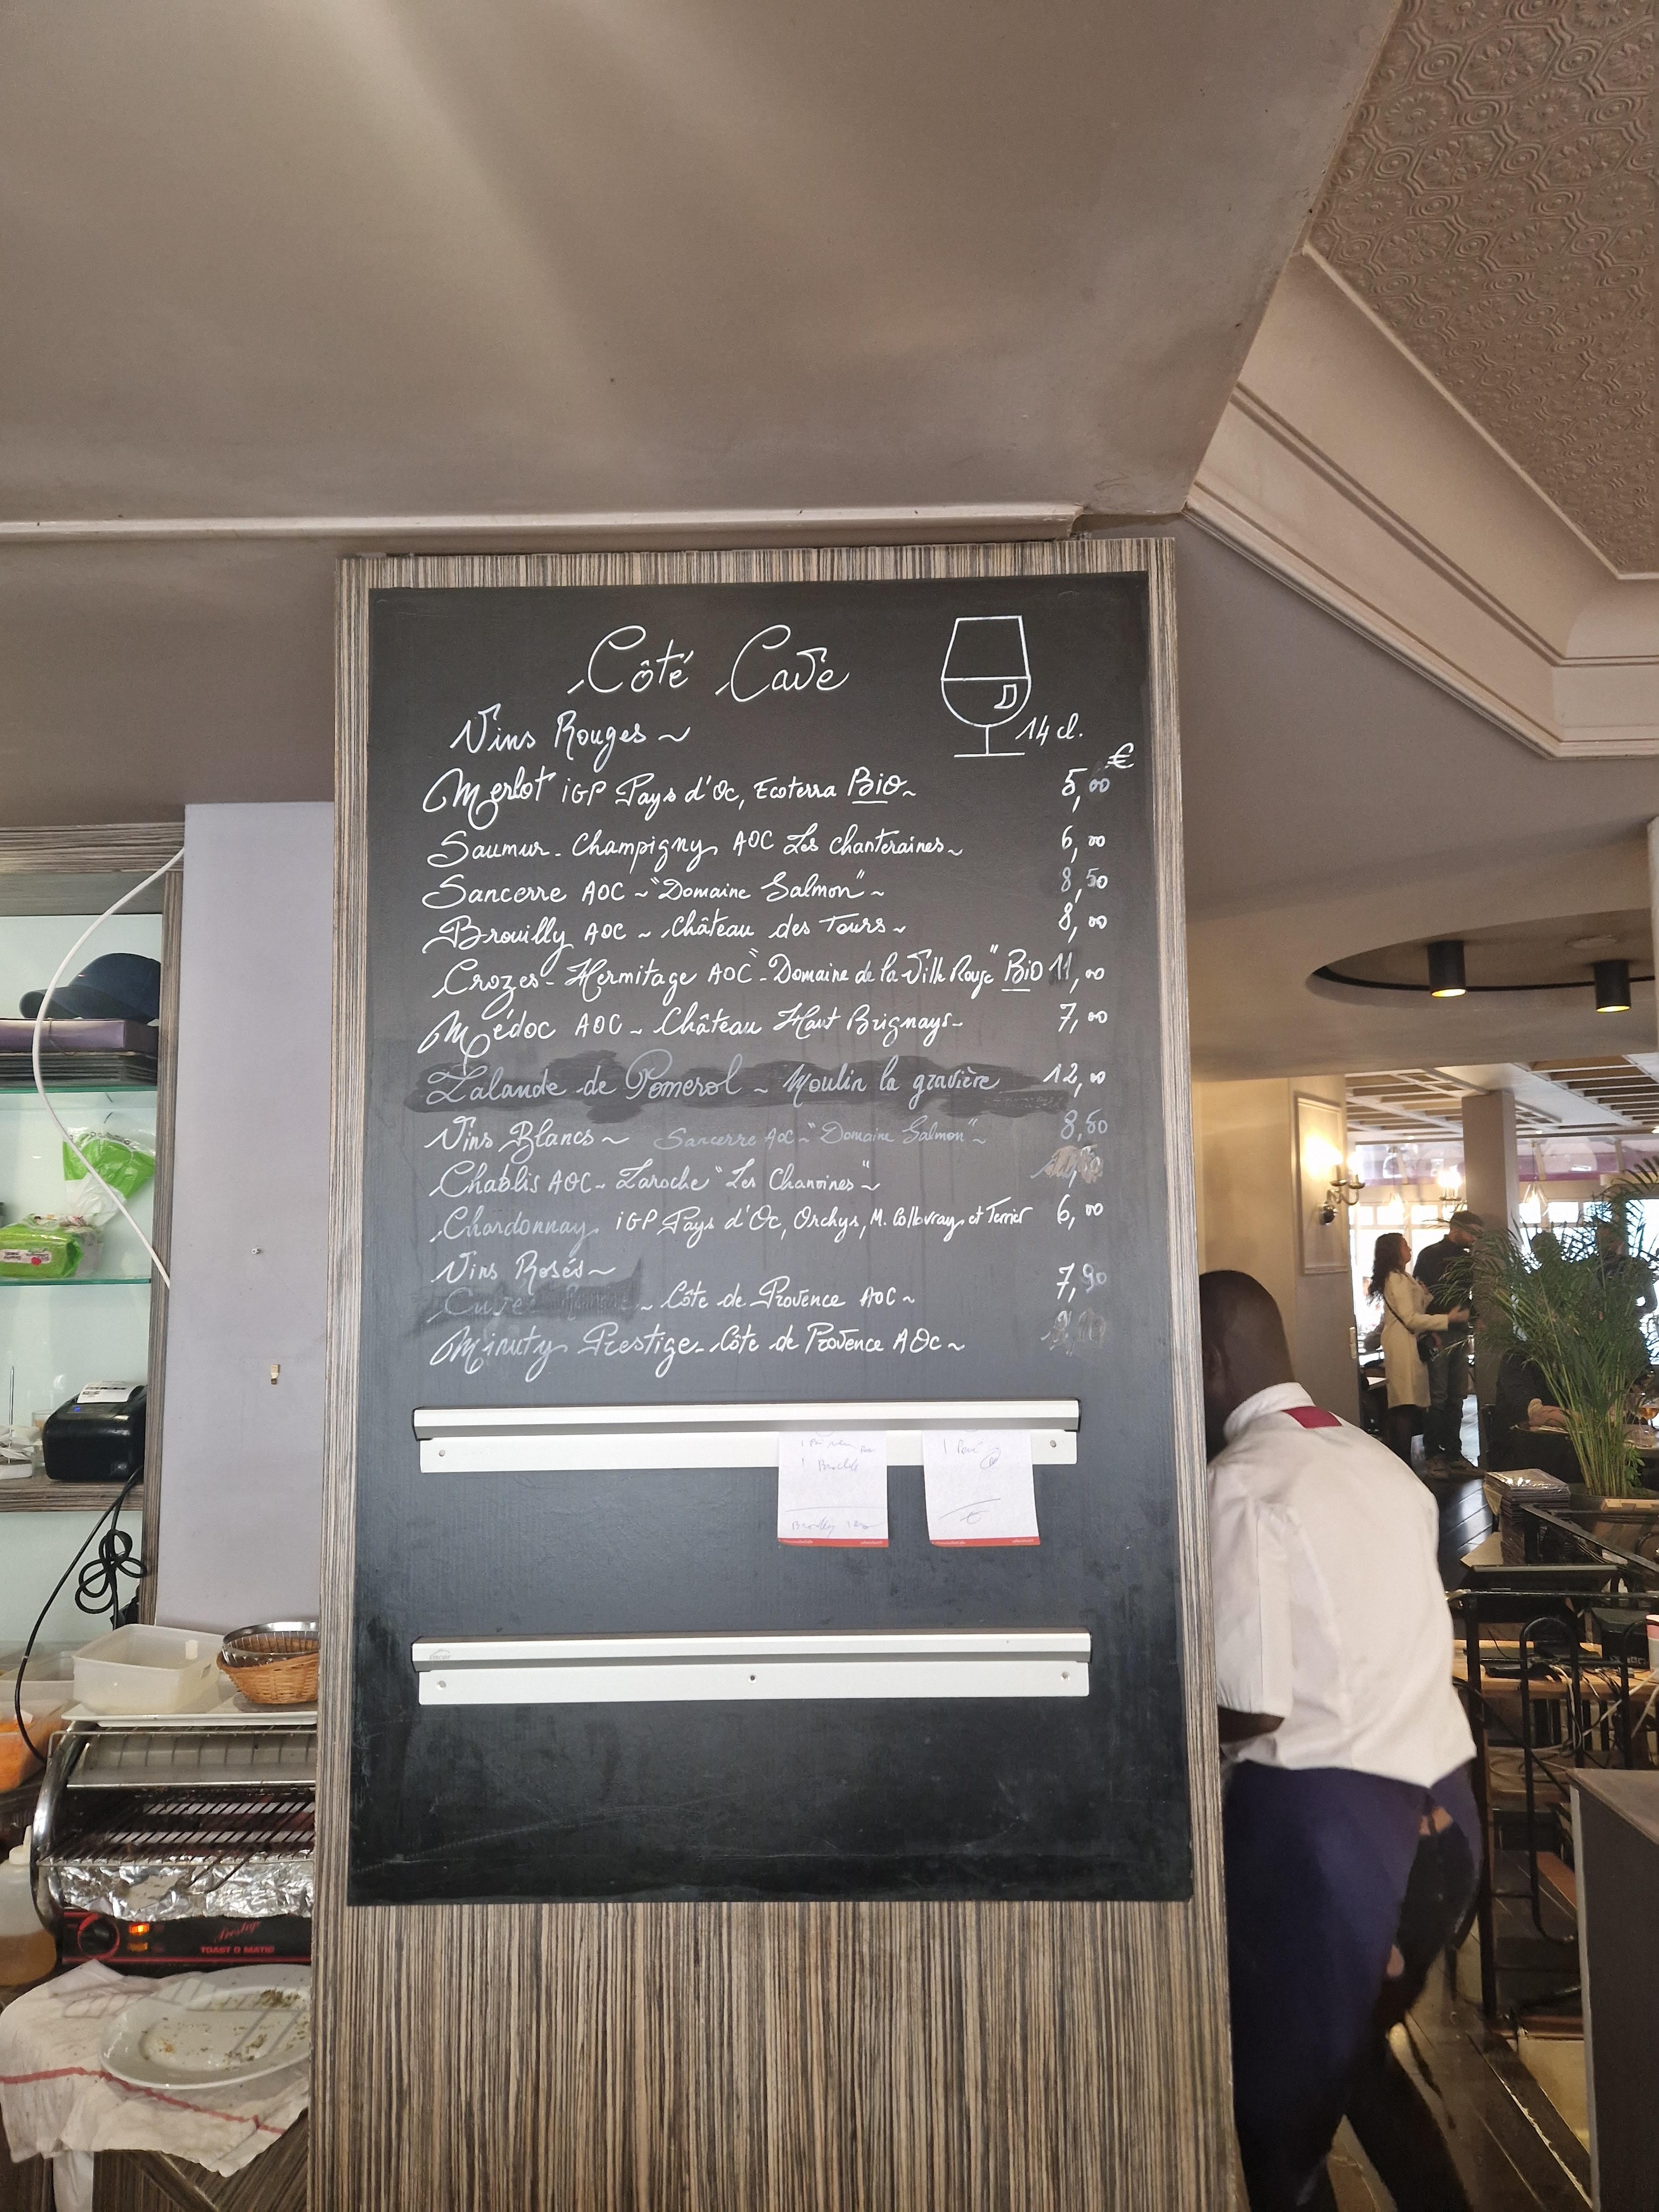 Côté Cave
14 cl.
Vins Rouges ~
€
Merlot iGP Pays d'Oc, Ecoterra Bio ~ 5,00
Saumur - Champigny AOC Les Chanteraines ~ 6,00
Sancerre AOC ~ "Domaine Salmon" ~ 8,50
Brouilly AOC ~ Château des Tours ~ 8,00
Crozes - Hermitage AOC - "Domaine de la Ville Rouge" Bio 11,00
Médoc AOC - Château Haut Brignays - 7,00
Lalande de Pomerol ~ Moulin la gravière 12,00
Vins Blancs ~ Sancerre AOC ~ "Domaine Salmon" ~ 8,50
Chablis AOC - Laroche "Les Chanoines" ~
Chardonnay iGP Pays d'Oc, Orchys, M. Collovray et Terrier 6,00
Vins Rosés ~
~ Côte de Provence AOC ~ 7,90
Minuty Prestige - Côte de Provence AOC ~
Prestige
TOAST O MATIC